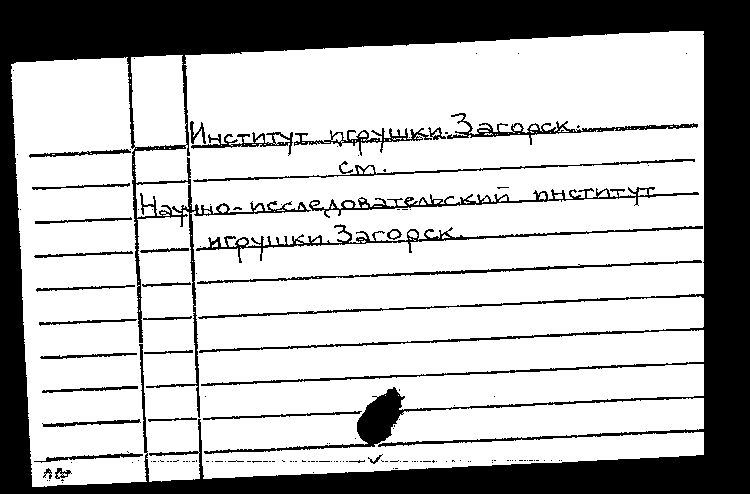 Институт игрушки. Загорск.
см.
Научно-исследовательский институт
игрушки. Загорск.